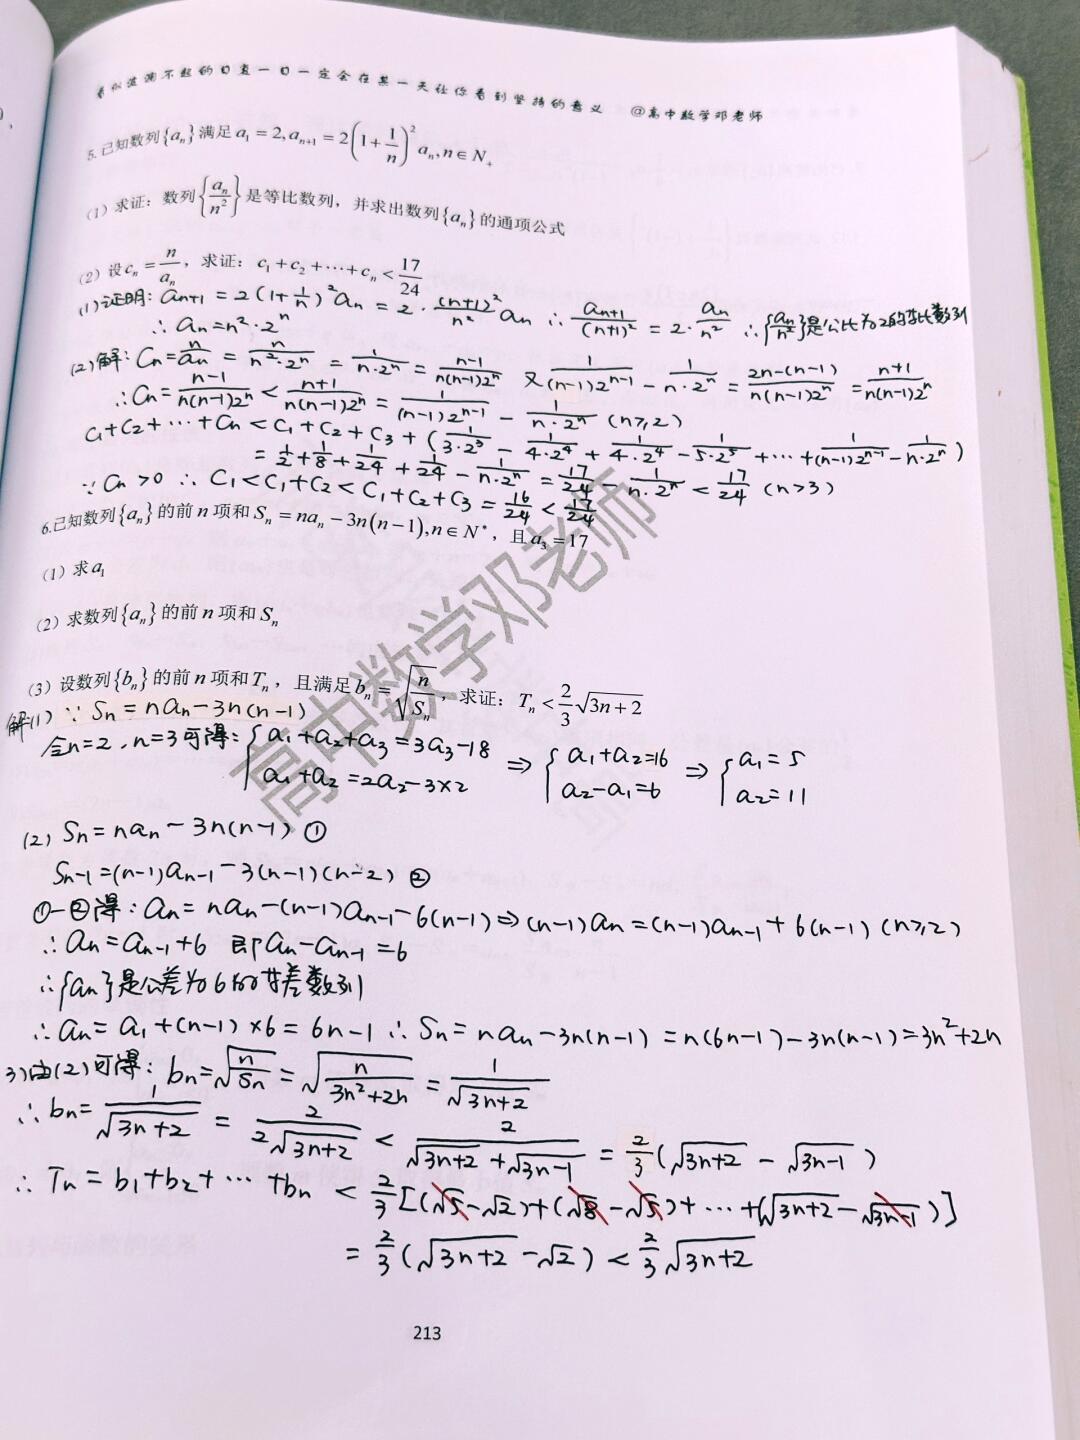 看似波澜不起的日复一日一定会在某一天让你看到坚持的意义 @高中数学邓老师
5.已知数列{aₙ}满足a₁=2,aₙ₊₁=2(1+1/n)²aₙ,n∈N₊
(1)求证：数列{aₙ/n²}是等比数列，并求出数列{aₙ}的通项公式
(2)设cₙ=n/aₙ，求证：c₁+c₂+⋯+cₙ<17/24
(1)证明：aₙ₊₁=2(1+1/n)²aₙ=2·(n+1)²/n² aₙ ∴aₙ₊₁/(n+1)²=2·aₙ/n² ∴{aₙ/n²}是公比为2的等比数列
∴aₙ=n²·2ⁿ
(2)解：Cₙ=n/aₙ=n/(n²·2ⁿ)=1/(n·2ⁿ)=(n-1)/(n(n-1)2ⁿ) 又1/((n-1)2ⁿ⁻¹)-1/(n·2ⁿ)=(2n-(n-1))/(n(n-1)2ⁿ)=(n+1)/(n(n-1)2ⁿ)
∴Cₙ=(n-1)/(n(n-1)2ⁿ)<(n+1)/(n(n-1)2ⁿ)=1/((n-1)2ⁿ⁻¹)-1/(n·2ⁿ) (n≥2)
C₁+C₂+⋯+Cₙ<C₁+C₂+C₃+(1/(3·2³)-1/(4·2⁴)+1/(4·2⁴)-1/(5·2⁵)+⋯+1/((n-1)2ⁿ⁻¹)-1/(n·2ⁿ))
=1/2+1/8+1/24+1/24-1/(n·2ⁿ)=17/24-1/(n·2ⁿ)<17/24 (n>3)
∵Cₙ>0 ∴C₁<C₁+C₂<C₁+C₂+C₃=16/24<17/24
6.已知数列{aₙ}的前n项和Sₙ=naₙ-3n(n-1),n∈N*，且a₃=17
(1)求a₁
(2)求数列{aₙ}的前n项和Sₙ
(3)设数列{bₙ}的前n项和Tₙ，且满足bₙ=√(n/Sₙ)，求证：Tₙ<2/3√(3n+2)
解(1)∵Sₙ=naₙ-3n(n-1)
令n=2,n=3可得：{a₁+a₂+a₃=3a₃-18 a₁+a₂=2a₂-3×2 ⇒{a₁+a₂=16 a₂-a₁=6 ⇒{a₁=5 a₂=11
(2)Sₙ=naₙ-3n(n-1)①
Sₙ₋₁=(n-1)aₙ₋₁-3(n-1)(n-2)②
①-②得：aₙ=naₙ-(n-1)aₙ₋₁-6(n-1)⇒(n-1)aₙ=(n-1)aₙ₋₁+6(n-1) (n≥2)
∴aₙ=aₙ₋₁+6 即aₙ-aₙ₋₁=6
∴{aₙ}是公差为6的等差数列
∴aₙ=a₁+(n-1)×6=6n-1 ∴Sₙ=naₙ-3n(n-1)=n(6n-1)-3n(n-1)=3n²+2n
3)由(2)可得：bₙ=√(n/Sₙ)=√(n/(3n²+2n))=1/√(3n+2)
∴bₙ=1/√(3n+2)=2/(2√(3n+2))<2/(√(3n+2)+√(3n-1))=2/3(√(3n+2)-√(3n-1))
∴Tₙ=b₁+b₂+⋯+bₙ<2/3[(√5-√2)+(√8-√5)+⋯+(√(3n+2)-√(3n-1))]
=2/3(√(3n+2)-√2)<2/3√(3n+2)
高中数学邓老师
213